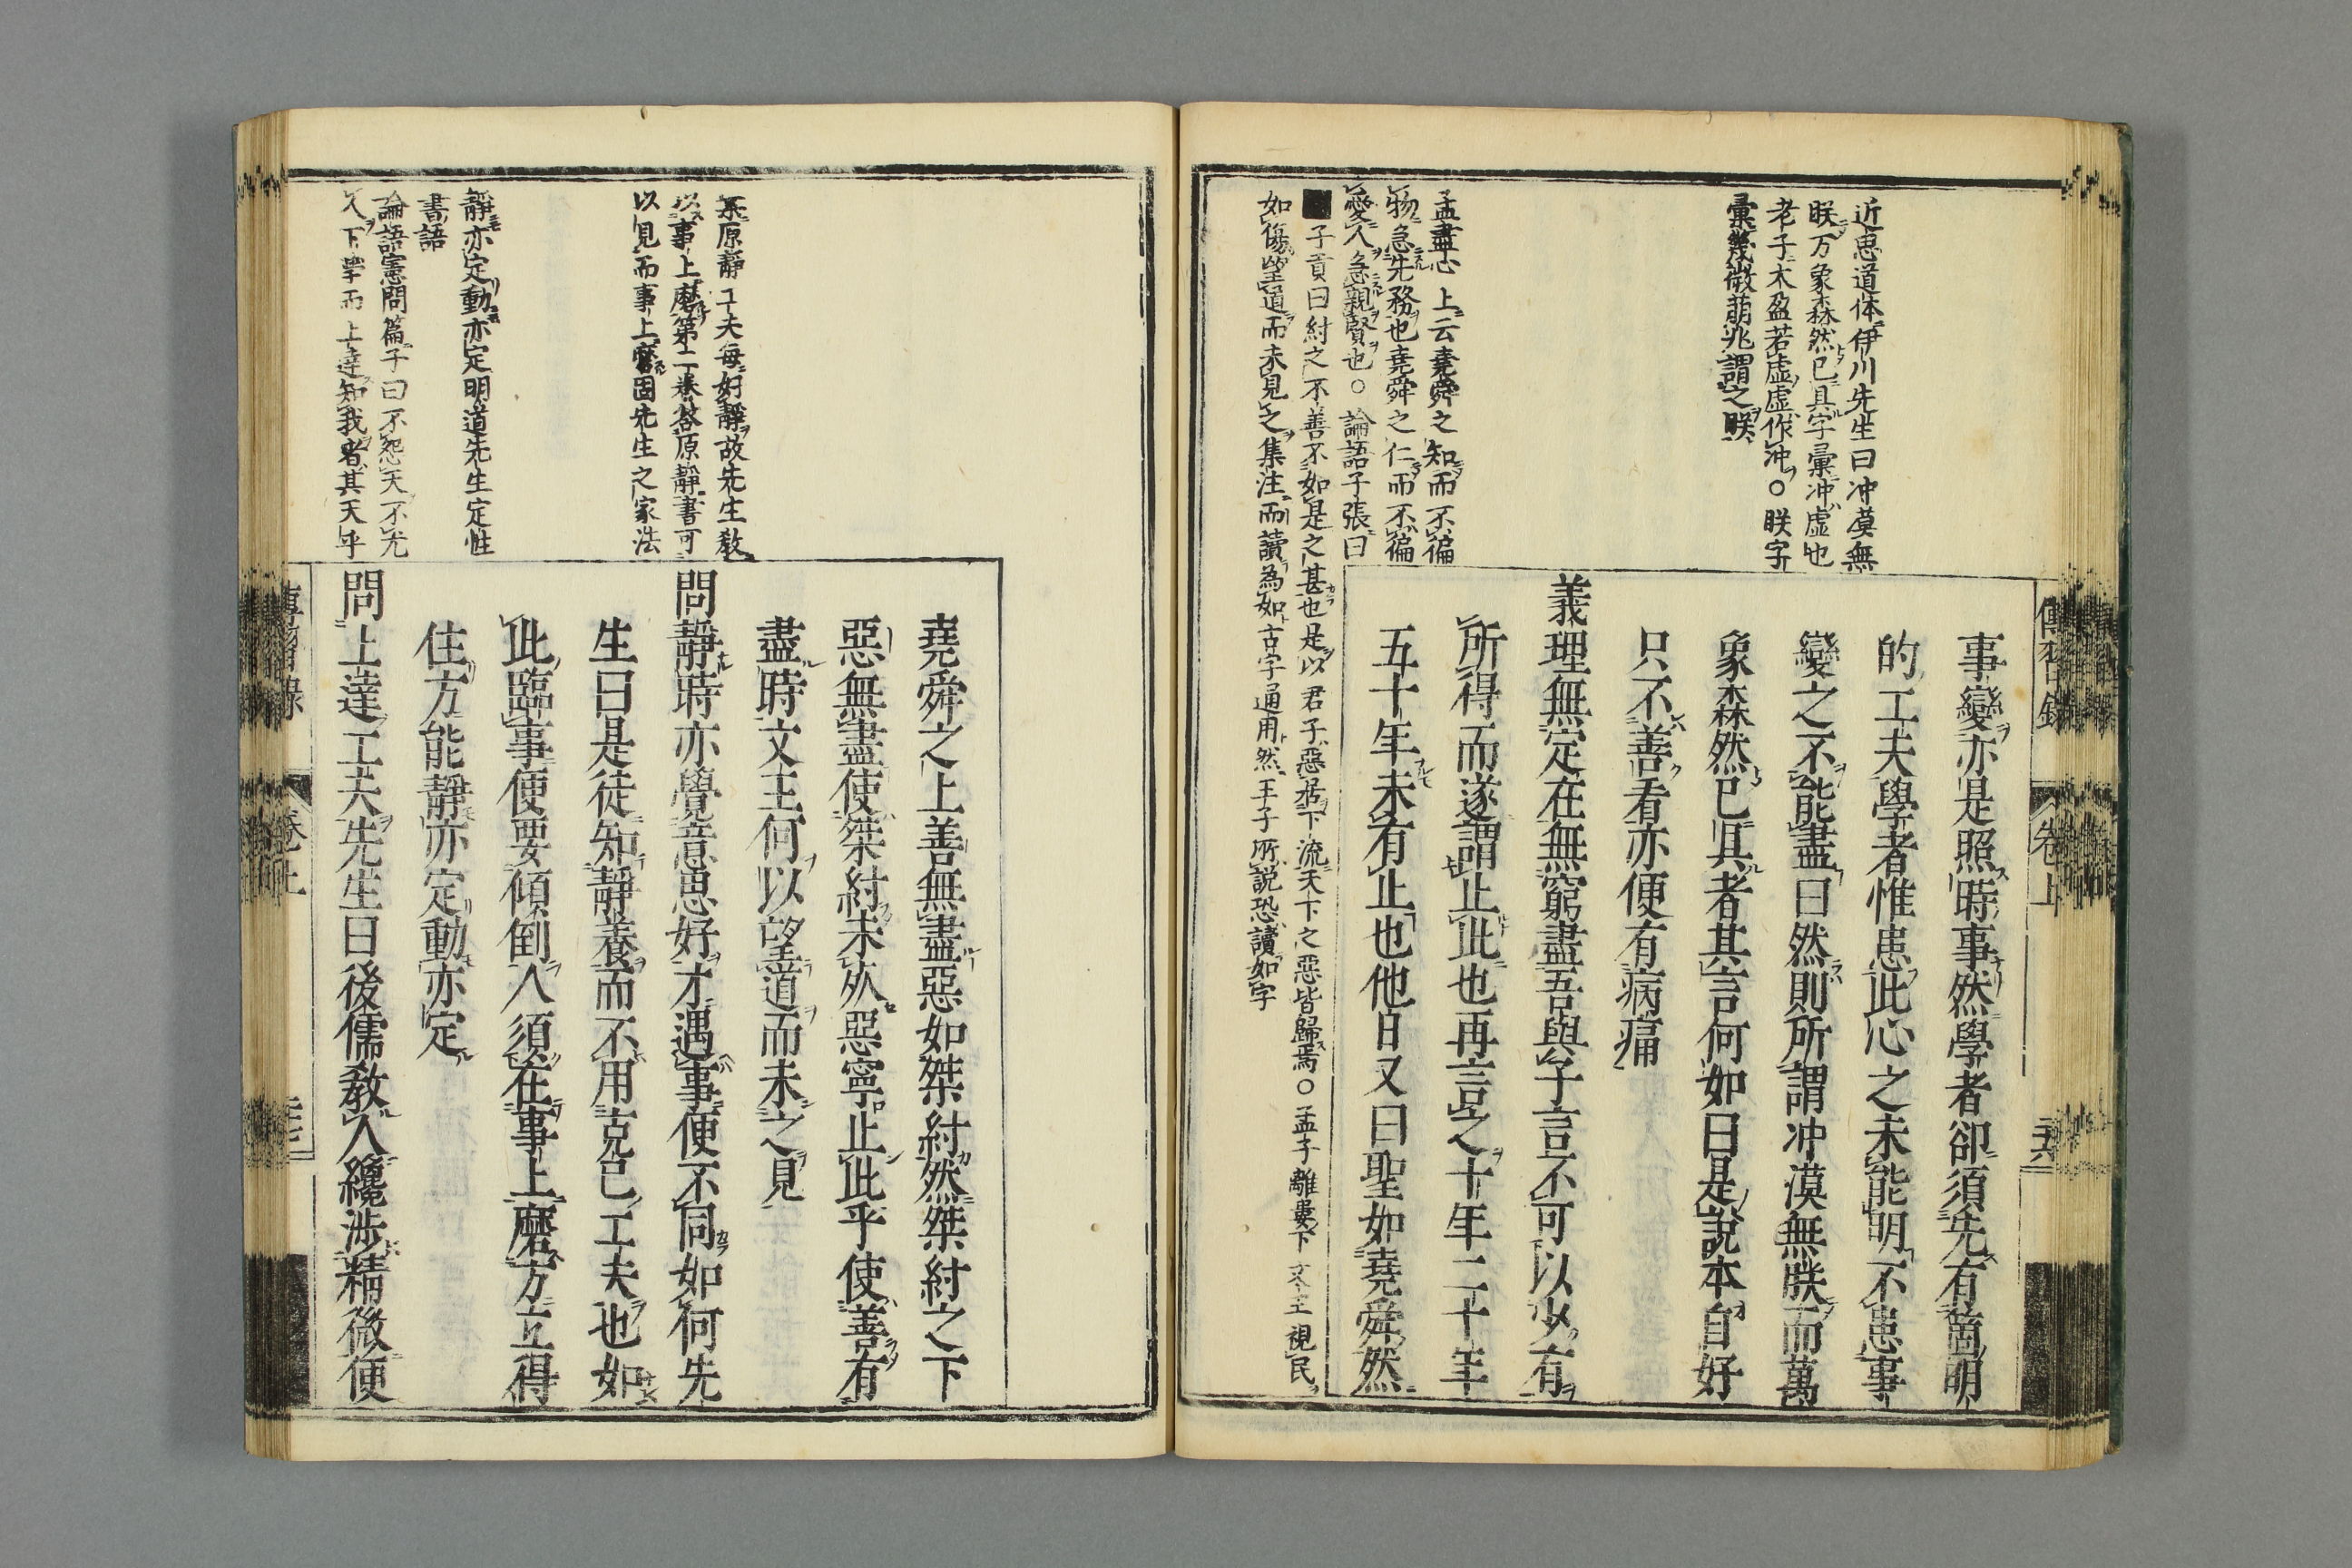 傳習録
卷上
近思道体伊川先生曰冲漠無
朕万象森然已具字彙冲虚也
老子大盈若虚虚作冲〇朕字
彙幾微萠兆謂之朕
孟盡心上云堯舜之知而不徧
物急先務也堯舜之仁而不徧
愛人急親賢也〇論語子張曰
子貢曰紂之不善不如是之甚也是以君子惡居下流天下之惡皆歸焉〇孟子離婁下文王視民
如傷望道而未見之集注而讀為如古字通用然王子所説恐讀如字
事變亦是照時事然學者卻須先有箇明
的工夫學者惟患此心之未能明不患事
變之不能盡曰然則所謂冲漠無朕而萬
象森然已具者其言何如曰是說本自好
只不善看亦便有病痛
義理無定在無窮盡吾與子言不可以少有
所得而遂謂止此也再言之十年二十年
五十年未有止也他日又曰聖如堯舜然
堯舜之上善無盡惡如桀紂然桀紂之下
惡無盡使桀紂未死惡寧止此乎使善有
盡時文王何以望道而未之見
問靜時亦覺意思好才遇事便不同如何先
生曰是徒知靜養而不用克己工夫也如
此臨事便要傾倒人須在事上磨方立得
住方能靜亦定動亦定
問上達工夫先生曰後儒教人纔涉精微便
原靜工夫每好靜故先生教
以事上磨第二卷答原靜書可
以見而事上磨固先生之家法
靜亦定動亦定明道先生定性
書語
論語憲問篇子曰不怨天不尤
人下學而上達知我者其天乎
卷上